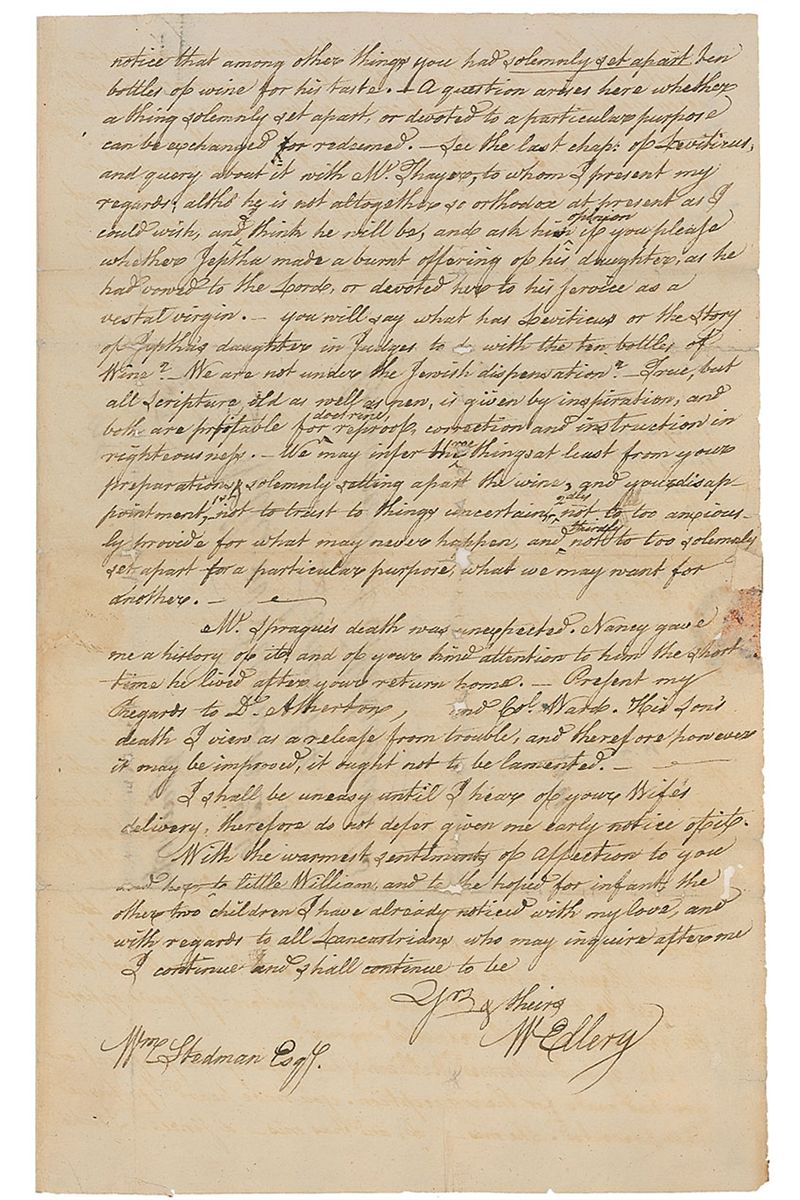 notice that among other things you had solemnly set apart ten
bottles of wine for his taste. – A question arises here whether
a thing solemnly set apart, or devoted to a particular purpose
can be exchanged or redeemed. – See the last chap: of Leviticus,
and query about it with Mr. Thayer, to whom I present my
regards, altho he is not altogether so orthodox at present as I
could wish, and think he will be, and ask his opinion if you please
whether Jeptha made a burnt offering of his daughter, as he
had vowed to the Lord, or devoted her to his service as a
vestal virgin. – you will say what has Leviticus or the story
of Jepthas daughter in Judges to do with the ten bottles of
Wine? – We are not under the Jewish dispensation? – True, but
all scripture old as well as new, is given by inspiration, and
both are profitable for doctrine, reproof, correction and instruction in
righteousness. – We may infer three things at least from your
preparation, & solemnly setting apart the wine, and your disap-
pointment, 1st. not to trust to things uncertain, 2dly not to too anxious-
ly provide for what may never happen, and thirdly not to too solemnly
set apart for a particular purpose, what we may want for
another. –
Mr. Sprague's death was unexpected. Nancy gave
me a history of it and of your kind attention to him the short
time he lived after your return home. – Present my
Regards to Dr. Atherton, and Col. Ward. His Son's
death I view as a release from trouble, and therefore however
it may be improved, it ought not to be lamented. –
I shall be uneasy until I hear of your Wife's
delivery, therefore do not defer given me early notice of it.
With the warmest sentiments of affection to you
and her, to little William, and to the hoped for infant, the
other two children I have already noticed with my love, and
with regards to all Lancastrians who may inquire after me
I continue and shall continue to be
Yrs & theirs
W Ellery
Wm Stedman Esqr.